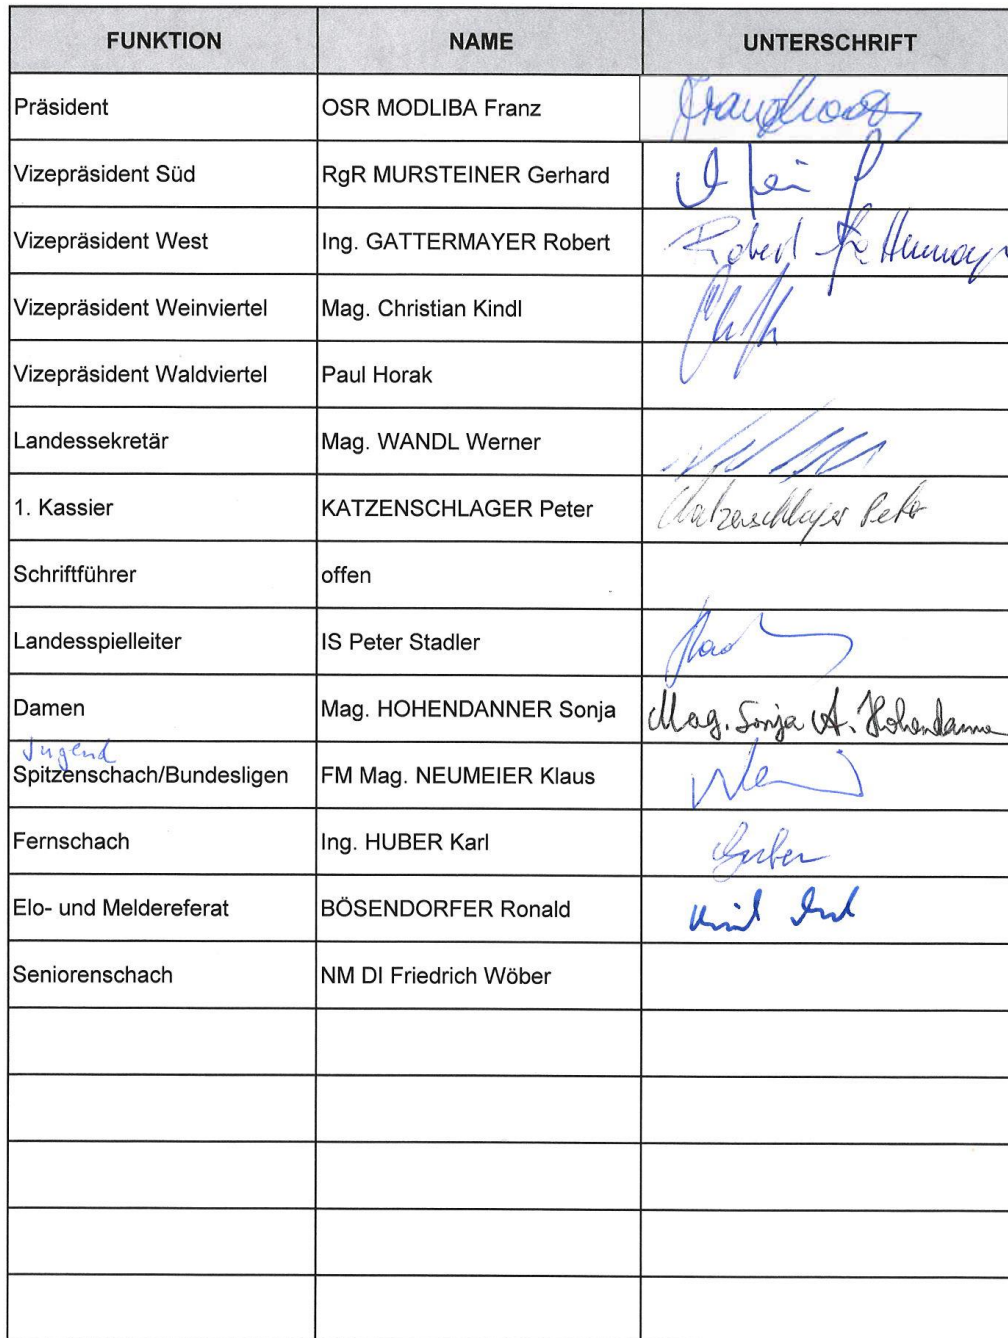 FUNKTION NAME UNTERSCHRIFT
Präsident OSR MODLIBA Franz
Vizepräsident Süd RgR MURSTEINER Gerhard
Vizepräsident West Ing. GATTERMAYER Robert Robert Gattermayr
Vizepräsident Weinviertel Mag. Christian Kindl
Vizepräsident Waldviertel Paul Horak
Landessekretär Mag. WANDL Werner
1. Kassier KATZENSCHLAGER Peter Katzenschlager Peter
Schriftführer offen
Landesspielleiter IS Peter Stadler
Damen Mag. HOHENDANNER Sonja Mag. Sonja A. Hohendanner
Jugend
Spitzenschach/Bundesligen FM Mag. NEUMEIER Klaus
Fernschach Ing. HUBER Karl
Elo- und Meldereferat BÖSENDORFER Ronald
Seniorenschach NM DI Friedrich Wöber